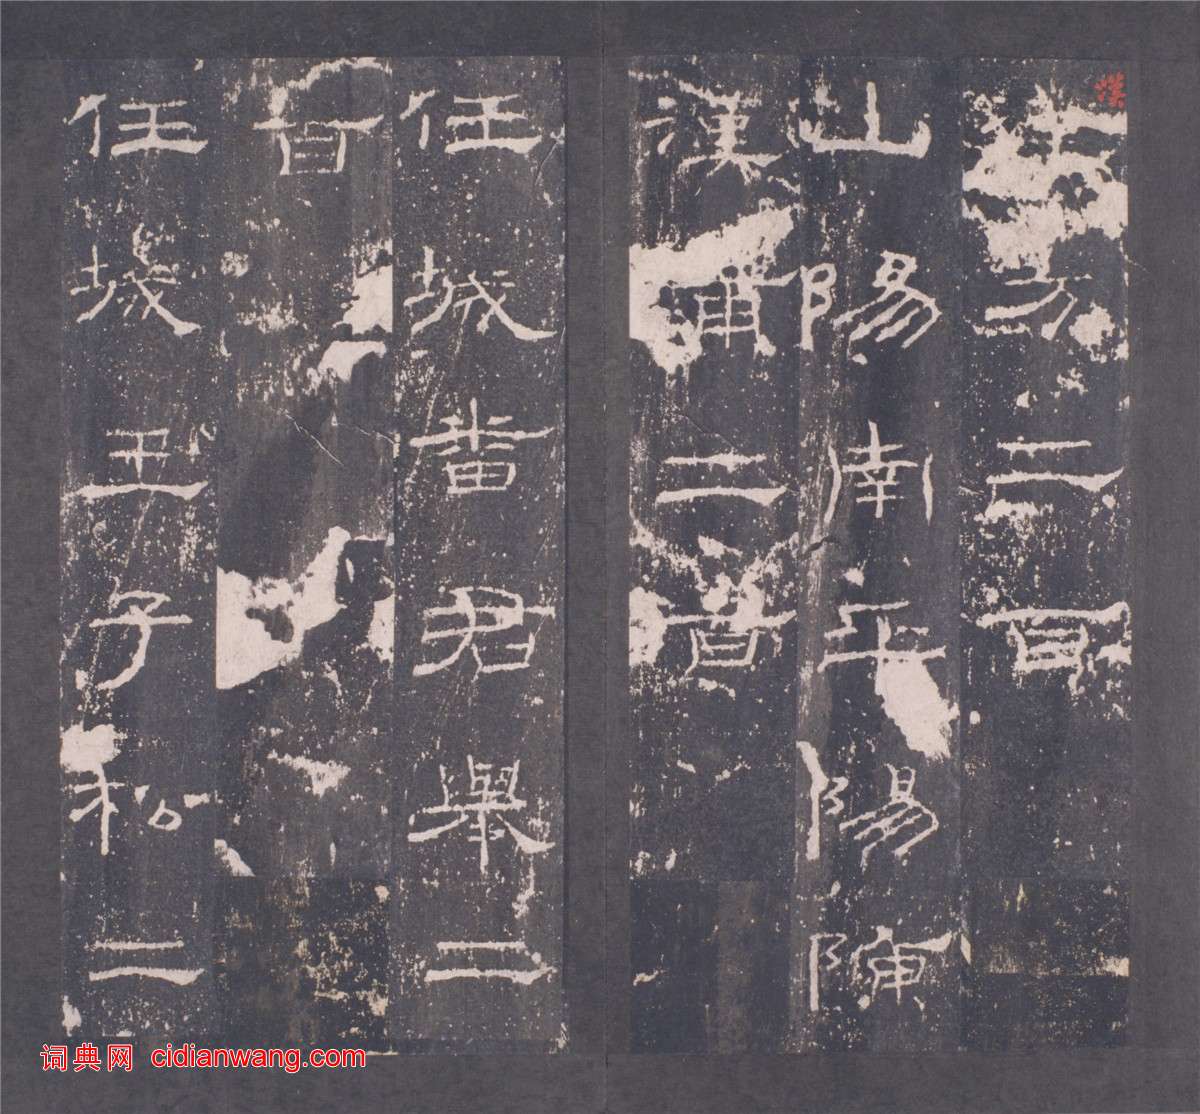 方二百
山陽南平陽陳
漢甫二百
任城番君舉二
百
任城王子松二
词典网 cidianwang.com